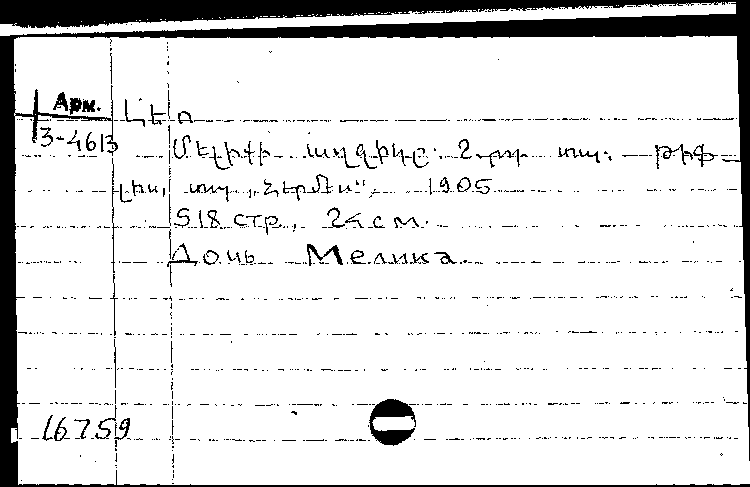 Арм.
3-4613
Լէո
Մելիքի աղջիկը. 2-րդ տպ. Թիֆ-
լիս, տպ. „Հերմէս“, 1905
518 стр., 24 см.
Дочь Мелика.
16759